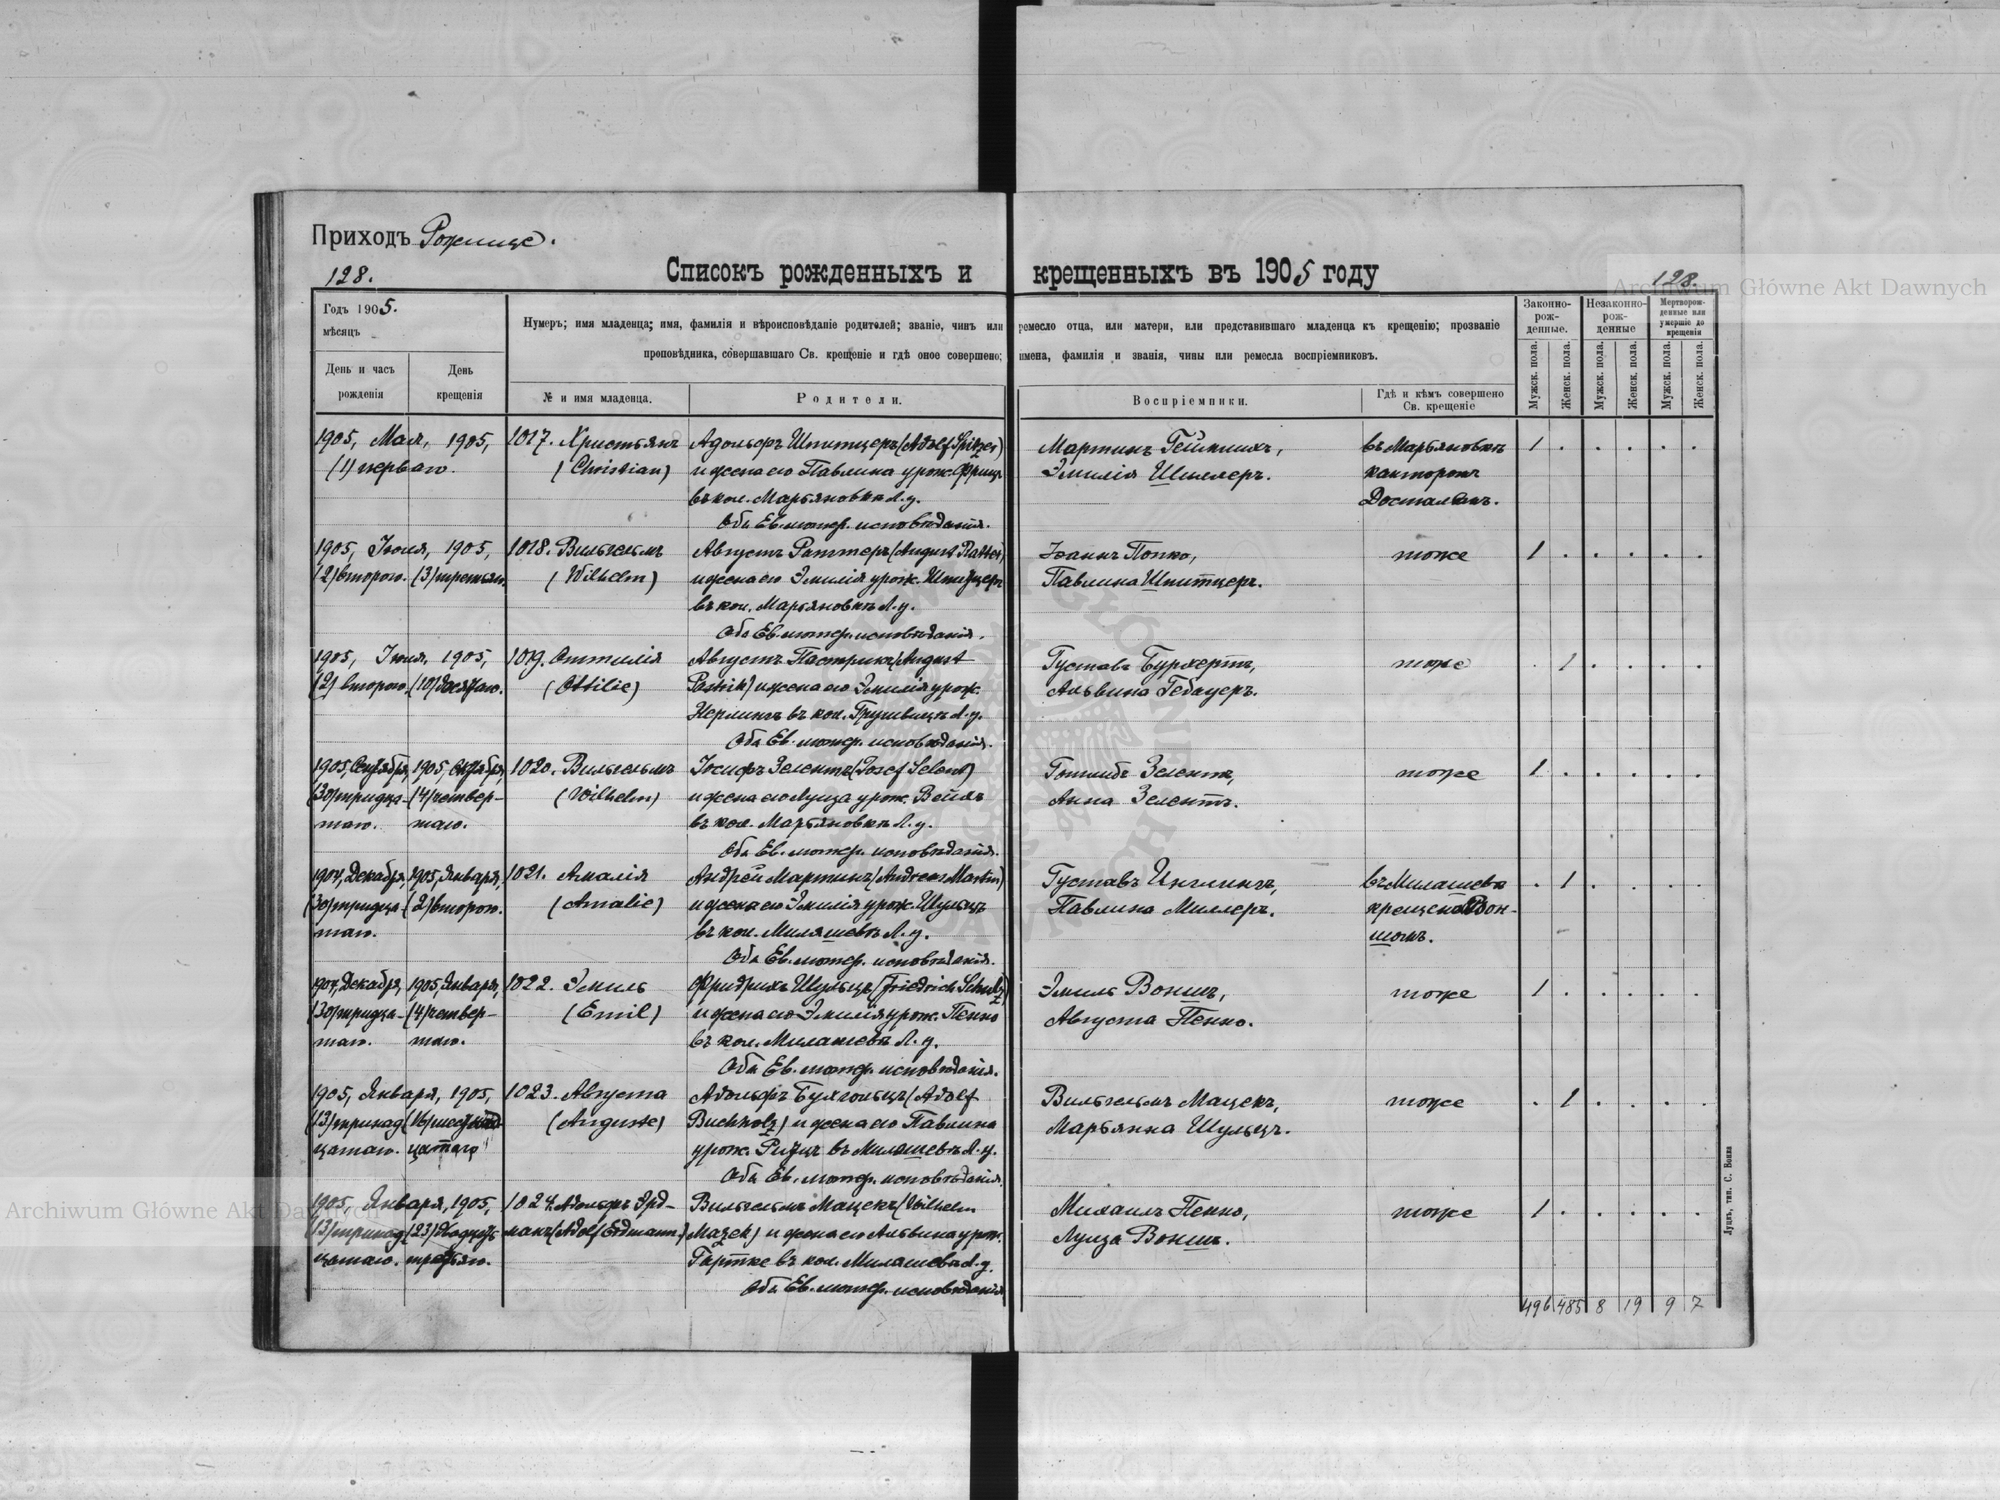 Приходъ Рожище.
128.
Списокъ рожденныхъ и крещенныхъ въ 1905 году
128.
Archiwum Główne Akt Dawnych
Годъ 1905.
мѣсяцъ
День и часъ рожденія
День крещенія
Нумеръ; имя младенца; имя, фамилія и вѣроисповѣданіе родителей; званіе, чинъ или ремесло отца, или матери, или представившаго младенца къ крещенію; прозваніе
проповѣдника, совершавшаго Св. крещеніе и гдѣ оное совершено; имена, фамиліи и званія, чины или ремесла воспріемниковъ.
№ и имя младенца.
Родители.
Воспріемники.
Гдѣ и кѣмъ совершено Св. крещеніе
Законно-рож-денные.
Незаконно-рож-денные
Мертворож-денные или умершіе до крещенія
Мужск. пола.
Женск. пола.
Мужск. пола.
Женск. пола.
Мужск. пола.
Женск. пола.
1905, Мая, 1905, 1017. Христьянъ Адольфъ Шпитцеръ (Adolf Spitzer) Мартинъ Геймнихъ, въ Мартьяновкѣ 1 . . . . .
(1) перваго. (Christian) и жена его Павлина урож. Фрицъ Эмилія Шиллеръ. канторомъ
въ кол. Мартьяновкѣ Л. у. Досталемъ.
Оба Ев. лютер. исповѣданія.
1905, Іюля, 1905, 1018. Вильгельмъ Августъ Раттеръ (August Ratter) Іоанъ Попко, тоже 1 . . . . .
(2) второго. (3) третьяго. (Wilhelm) и жена его Эмилія урож. Шпитцеръ Павлина Шпитцеръ.
въ кол. Мартьяновкѣ Л. у.
Оба Ев. лютер. исповѣданія.
1905, Іюля, 1905, 1019. Оттилія Августъ Пастрикъ (August Густавъ Бурхертъ, тоже . 1 . . . .
(2) второго. (10) десятаго. (Ottilie) Pastrik) и жена его Эмилія урож. Альвина Гебауеръ.
Нерлингъ въ кол. Грушвицѣ Л. у.
Оба Ев. лютер. исповѣданія.
1905, Сентября, 1905, Октября, 1020. Вильгельмъ Іосифъ Зелентъ (Josef Selent) Готлибъ Зелентъ, тоже 1 . . . . .
(30) тридца- (4) четвер- (Wilhelm) и жена его Луиза урож. Вейхъ Анна Зелентъ.
таго. таго. въ кол. Мартьяновкѣ Л. у.
Оба Ев. лютер. исповѣданія.
1904, Декабря, 1905, Января, 1021. Амалія Андрей Мартинъ (Andreas Martin) Густавъ Инглингъ, въ Милашевѣ . 1 . . . .
(30) тридца- (2) второго. (Amalie) и жена его Эмилія урож. Шульцъ Павлина Миллеръ. крещена Вон-
таго. въ кол. Миляшевѣ Л. у. шомъ.
Оба Ев. лютер. исповѣданія.
1904, Декабря, 1905, Января, 1022. Эмиль Фридрихъ Шульцъ (Friedrich Schulz) Эмиль Воншъ, тоже 1 . . . . .
(30) тридца- (4) четвер- (Emil) и жена его Эмилія урож. Пенно Августа Пенно.
таго. таго. въ кол. Милашевѣ Л. у.
Оба Ев. лютер. исповѣданія.
1905, Января, 1905, 1023. Августа Адольфъ Бухгольцъ (Adolf Вильгельмъ Мацекъ, тоже . 1 . . . .
(13) тринад- (16) шестнад- (Auguste) Buchholz) и жена его Павлина Марьянна Шульцъ.
цатаго. цатаго урож. Ритцъ въ Милашевѣ Л. у.
Оба Ев. лютер. исповѣданія.
1905, Января, 1905, 1024. Адольфъ Эрд- Вильгельмъ Мацекъ (Wilhelm Михаилъ Пенно, тоже 1 . . . . .
(13) тринад- (23) двадцать манъ (Adolf Erdmann) Mazek) и жена его Альвина урож. Луиза Воншъ.
цатаго. третьяго. Гартке въ кол. Милашевѣ Л. у.
Оба Ев. лютер. исповѣданія
496 485 8 19 9 7
Луцкъ, тип. С. Бокня
Archiwum Główne Akt Dawnych